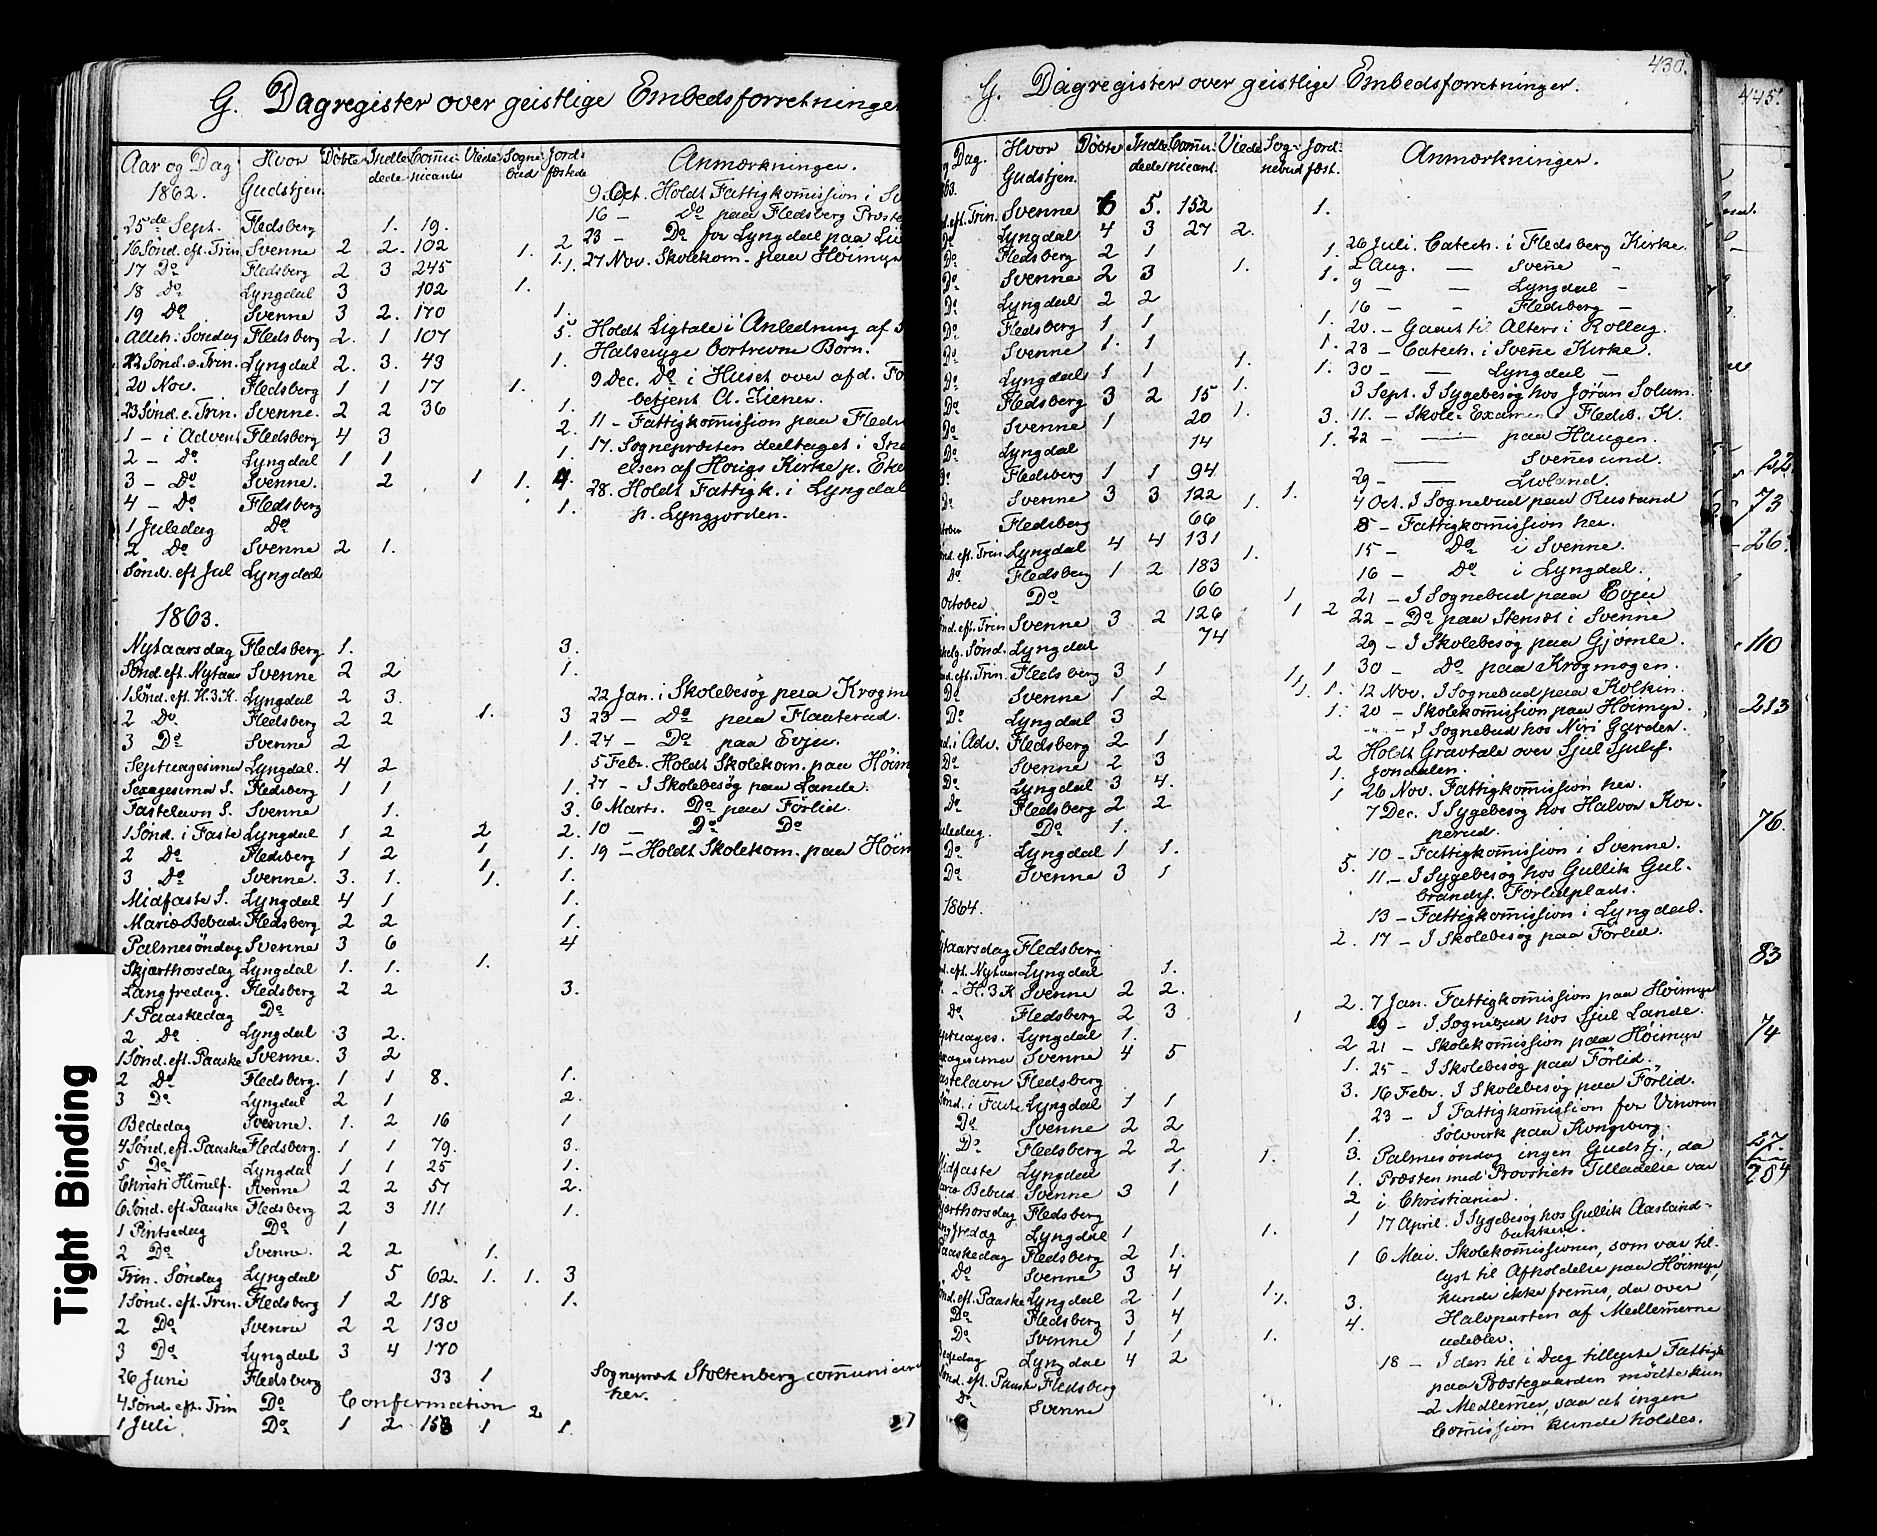 G. Dagregister over geistlige Embedsforretninger
Aar og Dag Hvor Gudstjen. Døbte Indledede Com̄unicants Viede Sognebud Jordfæstede Anmærkninger.
1862.
25de Sept. Fledsberg 1. 19.
16 Sönd. eft. Trin. Svenne 2 2. 102 1. 2
17 Do Fledsberg 2 3 245 1.
18 Do Lyngdal 3 102 1.
19 Do Svenne 3 2. 170 1.
Alleh. Söndag Fledsberg 2. 1 107 5
22 Sönd. e. Trin. Lyngdal 2. 3. 43 1.
20 Nov. Fledsberg 1 1 17 1.
23 Sönd. e. Trin. Svenne. 2 2 36 1.
1 – i Advent Fledsberg 4 3 2.
2 – Do Lyngdal 1 1 1.
3 – Do Svenne. 2 1 1.
4 – Do Fledsberg 1.
1 Juledag Do
2 Do Svenne 2 1.
Sönd. eft Jul Lyngdal
9 Oct. Holdt Fattigkom̄ission i
16 – Do paa Fledsberg
23 – Do for Lyngdal paa
27 Nov. Skolekom. paa Höimyr
Holdt Ligtale i Anledning af
Halsesyge bortrevne Børn.
9 Dec. Do i Huset over afd.
betjent A. Ziener.
11 – Fattigkom̄ission paa
17. Sognepræsten deeltaget i
elsen af Hougs Kirke p.
28. Holdt Fattigk. i Lyngdal
p. Lyngjorden.
1863.
Nytaarsdag Fledsberg 1. 3.
Sönd. eft. Nytaar Svenne 2 2 1.
1 Sönd. eft. H.3.K. Lyngdal 2 3.
2 Do Fledsberg 2 2 1. 3
3 Do Svenne 2 1.
Septuagesima Lyngdal. 4 2
Sexagesima S. Fledsberg 1 1 1.
Fastelavn S. Svenne 1. 3.
1 Sönd. i Faste Lyngdal 1 2 2 2.
2 Do Fledsberg 1 2 1 1.
3 Do Svenne. 3. 1. 1. 1.
Midfaste S. Lyngdal 4 1 1.
Mariæ Bebud. Fledsberg 2 2 1.
Palmesöndag Svenne 3 6 4
Skjærthorsdag Lyngdal 1. 1. 1.
Langfredag. Fledsberg 2 2 3.
1 Paaskedag Do
2 Do Lyngdal 3 2.
1 Sönd. eft. Paaske Svenne. 3 2
2 Do Fledsberg. 1 1 8. 1.
3 Do Lyngdal 2 1 2.
Bededag Svenne. 1. 2 16 1
4 Sönd. eft. Paaske Fledsberg. 1 1 79. 3.
5 Do Lyngdal 1 1 25 1.
Christi Him̄elf. Svenne 2 2 57 2.
6 Sönd. eft. Paaske Fledsberg 2 3 111 1.
1 Pintsedag Do 1
2 Do Svenne. 2 2 1.
Trin. Söndag Lyngdal 5 62. 1. 1. 3
1 Sönd. eft. Trin. Fledsberg 1 2 118 1.
2 Do Svenne 2 2 130
3 Do Lyngdal 3 4 170
26 Juni Fledsberg 33 1
4 Sönd. eft. Trin Do Confirmation 2
1 Juli. Do 1 2 1 1.
22 Jan. i Skolebesøg paa
23 – Do paa Flaaterud.
24 – Do paa Evju.
5 Febr. Holdt Skolekom. paa
27 – I Skolebesøg paa Lande.
6 Marts. Do paa Förlid.
10 – Do Do
19 – Holdt Skolekom. paa
Sognepræst Stoltenberg
her.
430.
G. Dagregister over geistlige Embedsforretninger.
Dag. Hvor Gudstjen. Døbte Indledede Com̄unicant. Viede Sognebud Jordfæst. Anmærkninger.
eft. Trin. Svenne 6 5. 152 1.
Do Lyngdal 4 3 27 2.
Do Fledsberg 2 1 1.
Do Svenne 2 3 1. 1.
Do Lyngdal 2 2
Do Fledsberg 1 1 1.
Do Svenne 1. 1 1.
Do Lyngdal 1 1 1. 1.
Do Fledsberg 3 2 15 1.
Do Svenne 1 20 1. 3.
Do Lyngdal 14 1.
Do Fledsberg 1 1 94
Do Svenne 3 3 122 1. 1.
Fledsberg 66
eft. Trin Lyngdal 4 4 131 1.
Do Fledsberg 1 2 183
October Do 66 1
eft. Trin Svenne 3 2 126 1 2
Sönd. Lyngdal 74
eft. Trin. Fledsberg 3 1 1 1
Do Svenne 1 2 1. 1.
Do Lyngdal 3 1.
i Adv. Fledsberg 2 1
Do Svenne 2 3 2
Do Lyngdal 3 4. 1.
Do Fledsberg 2 2 1
Do 1.
Do Lyngdal 1 1.
Do Svenne 3 1 5.
26 Juli. Catech. i Fledsberg Kirke.
2 Aug. — Sven̄e –
9 – — Lyngdal –
16 – — Fledsberg –
20. – Gaaet til Alters i Rollag.
23 – Catech. i Sven̄e Kirke.
30 – — Lyngdal –
3 Sept. I Sygebesøg hos Jöran Solum.
11. – Skole-Examen i Fledsb. K.
22 – — paa Haugen.
— Sven̄esund.
29 – — Livland.
4 Oct. I Sognebud paa Rustand
8 – Fattigkom̄ission her.
15 – Do i Svenne.
16 – Do i Lyngdal.
21 – I Sognebud paa Evju
22 – Do paa Stensæt i Svenne
29 – I Skolebesøg paa Gjömle.
30 – Do paa Krogmogen.
12 Nov. I Sognebud paa Kolkin.
20 – Skolekom̄ission paa Höimyr.
" – I Sognebud hos Niri Garden.
Holdt Gravtale over Sjul Sjulss.
Jondalen.
26 Nov. Fattigkom̄ission her.
7 Dec. I Sygebesøg hos Halvor
perud.
10 – Fattigkom̄ission i Svenne.
11 – I Sygebesøg hos Gullik Gulbrands. Förlidplads.
13 – Fattigkom̄ission i Lyngdal.
17 – I Skolebesøg paa Förlid.
1864.
Fledsberg 2.
eft. Nytaar Lyngdal 1.
H. 3 K Svenne 2 2. 2.
Do Fledsberg 2 3 1
Lyngdal 1. 2
Svenne 4 5 1.
Fledsberg 3.
i Faste Lyngdal 1 1
Do Svenne 2 2 1.
Do Fledsberg 2 2 1. 3.
Midfaste Lyngdal 1. 1.
Bebud. Svenne 3 1 2
Fledsberg 1
Lyngdal 1 1.
Paaskedag Fledsberg 2 1. 1
Do Svenne 3 4
eft. Paaske Lyngdal 2 1 1. 3.
Do Fledsberg 3 4 4.
Do Svenne 1 1 1.
Lyngdal 4 2
eft. Paaske Fledsberg
Do Svenne
7 Jan. Fattigkom̄ission paa Höimyr
19 – I Sognebud hos Sjul Lande.
21 – Skolekom̄ission paa Höimyr
25 – I Skolebesøg paa Förlid.
16 Febr. I Skolebesøg paa Förlid.
23 – I Fattigkom̄ission for Vinoren
Sölvverk paa Kongsberg.
Palmesöndag ingen Gudstj., da
Præsten med Provstiets Tilladelse var
i Christiania.
17 April. I Sygebesøg hos Gullik Aasland-
bakken.
6 Mai. Skolekom̄issionen, som var til-
lyst til Afholdelse paa Höimyr,
kunde ikke frem̄es, da over
Halvparten af Medlem̄erne
udeblev.
18 – I den til i Dag tillyste Fattigk.
paa Præstegaarden mödte kun
2 Medlem̄er, saa at ingen
Com̄ission kunde holdes.
445.
73
26.
110
213
76.
83
74
57.
284
Tight Binding